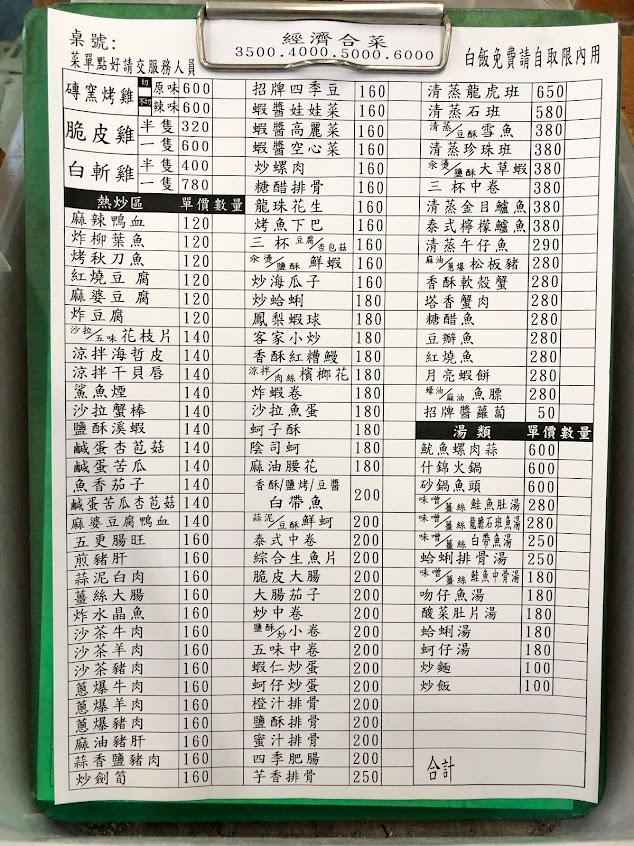 桌號:
菜單點好請交服務人員
經濟合菜
3500.4000.5000.6000
白飯免費請自取限內用
磚窯烤雞 切 原味 600
不切 辣味 600
脆皮雞 半隻 320
一隻 600
白斬雞 半隻 400
一隻 780
熱炒區 單價 數量
麻辣鴨血 120
炸柳葉魚 120
烤秋刀魚 120
紅燒豆腐 120
麻婆豆腐 120
炸豆腐 120
沙拉/五味 花枝片 140
涼拌海哲皮 140
涼拌干貝唇 140
鯊魚煙 140
沙拉蟹棒 140
鹽酥溪蝦 140
鹹蛋杏苞菇 140
鹹蛋苦瓜 140
魚香茄子 140
鹹蛋苦瓜杏苞菇 140
麻婆豆腐鴨血 140
五更腸旺 160
煎豬肝 160
蒜泥白肉 160
薑絲大腸 160
炸水晶魚 160
沙茶牛肉 160
沙茶羊肉 160
沙茶豬肉 160
蔥爆牛肉 160
蔥爆羊肉 160
蔥爆豬肉 160
麻油豬肝 160
蒜香鹽豬肉 160
炒劍筍 160
招牌四季豆 160
蝦醬娃娃菜 160
蝦醬高麗菜 160
蝦醬空心菜 160
炒螺肉 160
糖醋排骨 160
龍珠花生 160
烤魚下巴 160
三杯 豆腐/杏包菇 160
汆燙/鹽酥 鮮蝦 160
炒海瓜子 160
炒蛤蜊 180
鳳梨蝦球 180
客家小炒 180
香酥紅糟鰻 180
涼拌/肉絲 檳榔花 180
炸蝦卷 180
沙拉魚蛋 180
蚵子酥 180
陰司蚵 180
麻油腰花 180
香酥/鹽烤/豆醬
白帶魚 200
蒜泥/豆酥 鮮蚵 200
泰式中卷 200
綜合生魚片 200
脆皮大腸 200
大腸茄子 200
炒中卷 200
鹽酥/炒 小卷 200
五味中卷 200
蝦仁炒蛋 200
蚵仔炒蛋 200
橙汁排骨 200
鹽酥排骨 200
蜜汁排骨 200
四季肥腸 200
芋香排骨 250
清蒸龍虎班 650
清蒸石班 580
清蒸/豆酥 雪魚 380
清蒸珍珠班 380
汆燙/鹽酥 大草蝦 380
三杯中卷 380
清蒸金目鱸魚 380
泰式檸檬鱸魚 380
清蒸午仔魚 290
麻油/蔥爆 松板豬 280
香酥軟殼蟹 280
塔香蟹肉 280
糖醋魚 280
豆瓣魚 280
紅燒魚 280
月亮蝦餅 280
蠔油/麻油 魚膘 280
招牌醬蘿蔔 50
湯類 單價 數量
魷魚螺肉蒜 600
什錦火鍋 600
砂鍋魚頭 600
味噌/薑絲 鮭魚肚湯 280
味噌/薑絲 龍膽石班魚湯 280
味噌/薑絲 白帶魚湯 250
蛤蜊排骨湯 250
味噌/薑絲 鮭魚中骨湯 180
吻仔魚湯 180
酸菜肚片湯 180
蛤蜊湯 180
蚵仔湯 180
炒麵 100
炒飯 100
合計